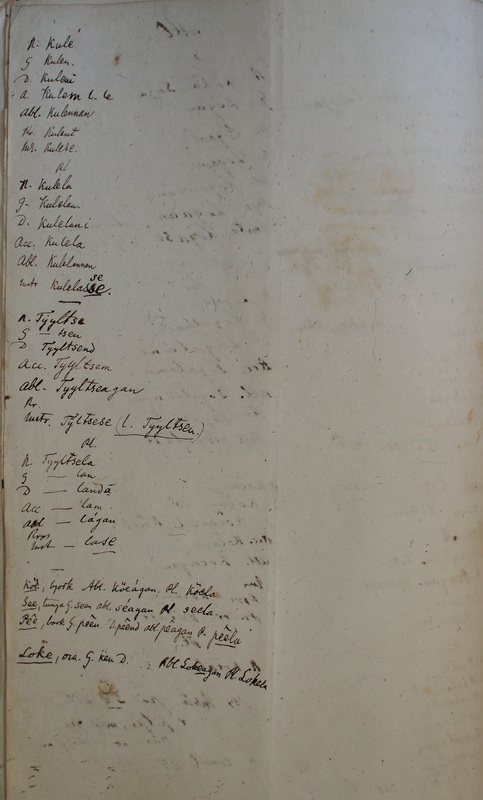 N. Kulé
G Kulen.
D. Kuleni
A. Kulem l. le
Abl. Kulennan
Pr. Kulent
Ins. Kulese.
Pl
N. Kulela
G. Kulelan.
D. Kulelani
Acc. Kulela
Abl. Kulelannan
Instr Kulelasese.
N. Tyyltse
G — tsen
D Tyyltsend
Acc. Tyyltsem
Abl. Tyyltseagan
Pr.
Instr. Tyltsese (l. Tyyltsen.)
Pl.
N. Tyyltsela
G — lan
D — landa
Acc — lam
Abl — lágan
Pros
Inst — lase
Köe, bjork Abl. Köeágan. Pl. Köela
See, tunga G. sem abl. séagan Pl seela.
Pêe, bark G pêen D. pêend abl. pêagan P. pêela
Loke, ora. G. ken D. Abl. Lokeagan Pl Lokela